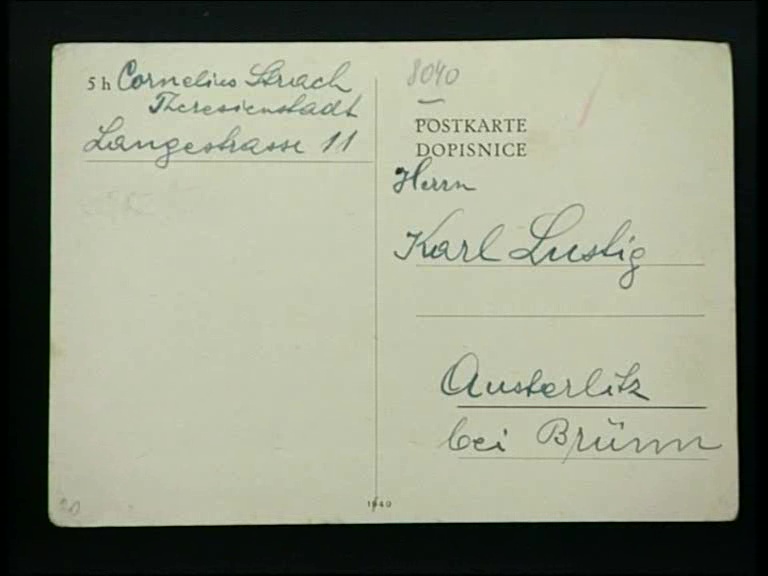 5 h Cornelius Strach
Theresienstadt
Langestrasse 11
8040
POSTKARTE
DOPISNICE
Herrn
Karl Lustig
Austerlitz
bei Brünn
1940
20